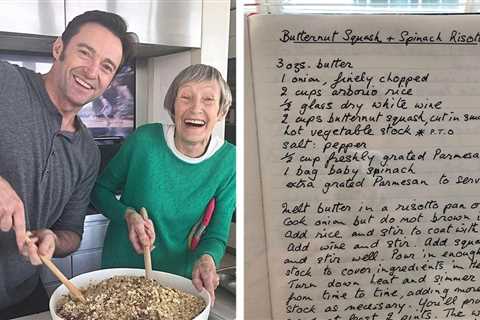 Butternut Squash + Spinach Risotto
3 ozs. butter
1 onion. finely chopped
2 cups arborio rice
½ glass dry white wine
2 cups butternut squash, cut in
hot vegetable stock * P.T.O
salt: pepper
½ cup freshly grated Parmesan
1 bag baby spinach
extra grated Parmesan to serve
Melt butter in a risotto pan o
Cook onion but do not brown
Add rice and stir to coat with
Add wine and stir. Add squa
and stir well. Pour in enough
stock to cover ingredients in
Turn down heat and simmer
from time to time, adding more
stock as necessary. You'll pro
least 2 pints. The